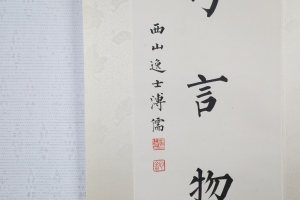 言物
西山逸士溥儒